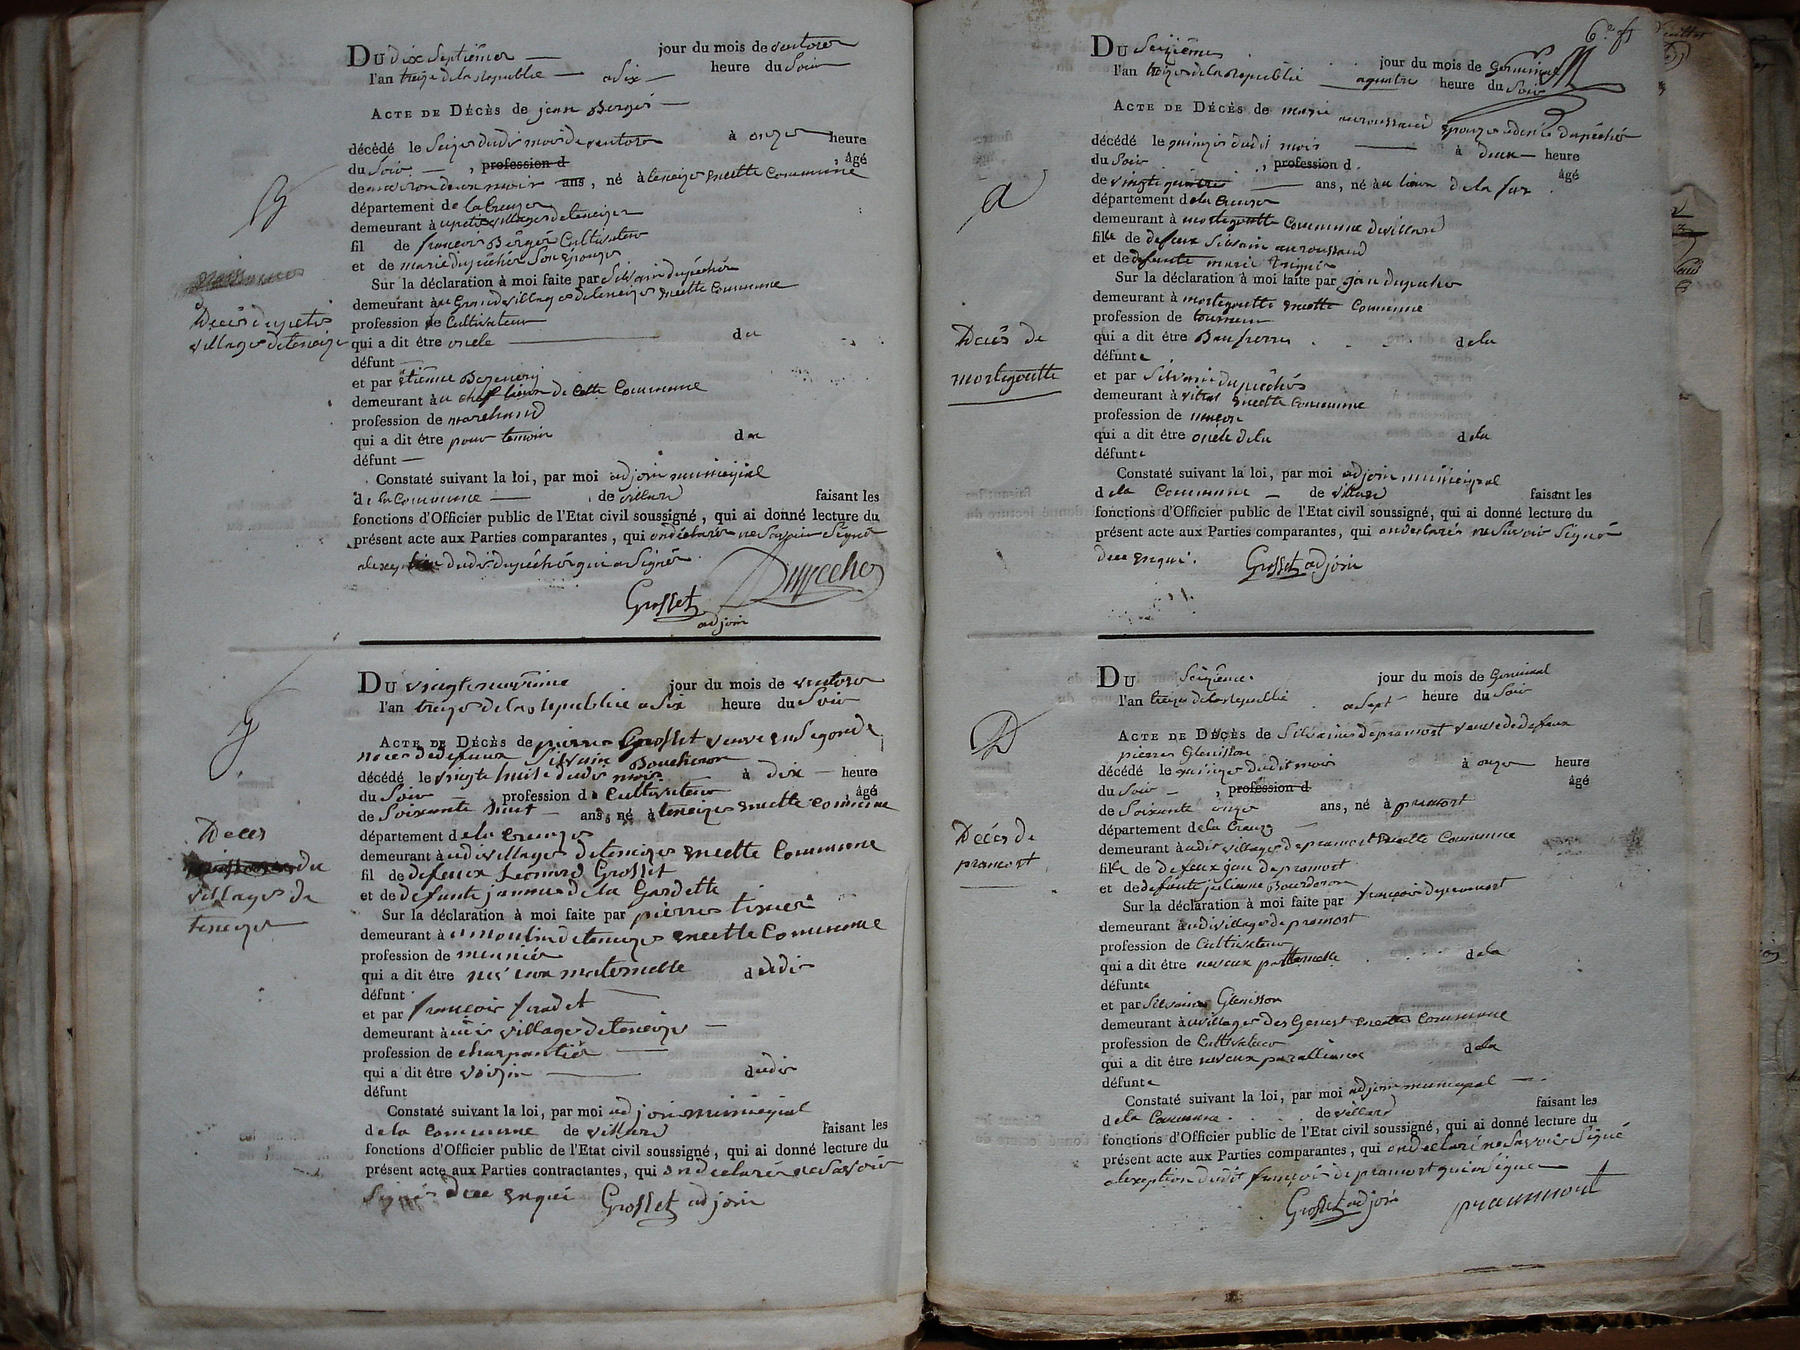 Du dix Septiême jour du mois de ventose
l'an treize de la republie a Six heure du Soir
Acte de Décès de jean Berger
décédé le Seize dudit mois de ventose à onze heure
du Soir , profession d , âgé
de environ deux mois ans, né à teneize encette Commune
département de la Creuze
demeurant à upetit village de teneize
fil de francois Berger Cultivateur
et de marie dupéchér Son épouze
Sur la déclaration à moi faite par Silvain dupéchér
demeurant àu Grand village de teneize encette Commune
profession de Cultivateur
qui a dit être oncle du
défunt
et par étienne
demeurant àu chef lieux de Cette Commune
profession de marchand
qui a dit être pour temoin du
défunt
Constaté suivant la loi, par moi adjoin municipal
de la Commune de villard faisant les
fonctions d'Officier public de l'Etat civil soussigné, qui ai donné lecture du
présent acte aux Parties comparantes, qui ondéclaré ne Savoir Signé
alexeption dudit dupéchér qui a Signé
Dupechér
Grosset
adjoin
Décès du petit
village de teneize
Du vingt neuvième jour du mois de ventose
l'an treize de la republie a Six heure du Soir
Acte de Décès de pierre Grosset veuve en Segonde
noces de defeux Silvaine Boucheron
décédé le vingt huit dudit mois à dix heure
du Soir , profession d Cultivateur , âgé
de Soixante huit ans, né à teneize encette commune
département de la Creuze
demeurant àudit village de teneize encette Commune
fil de defeux Leonard Grosset
et de defunte jeanne de la Gardette
Sur la déclaration à moi faite par pierre tixier
demeurant àu moulin de teneize encette Commune
profession de meunier
qui a dit être neveux maternelle dudit
défunt
et par francois
demeurant àudit village de teneize
profession de charpantiér
qui a dit être voizin dudit
défunt
Constaté suivant la loi, par moi adjoin municipal
de la Commune de villard faisant les
fonctions d'Officier public de l'Etat civil soussigné, qui ai donné lecture du
présent acte aux Parties contractantes, qui ondéclaré ne Savoir
Signé dece enqui Grosset adjoin
Deces
du
village de
teneize
6e ft
Du Seizième jour du mois de Germinal
l'an treize de la republie a quatre heure du Soir
Acte de Décès de marie auroussaud épouze
décédé le quinze dudit mois à deux heure
du Soir , profession d . âgé
de vingt quatre ans, né àu lieux de la
département de la Creuze
demeurant à mortegoutte Commune de villard
fille de defeux Silvain auroussaud
et de defunte marie
Sur la déclaration à moi faite par jean dupechér
demeurant à mortegoutte encette Commune
profession de tourneur
qui a dit être Beau frere de la
défunte
et par Silvain dupéchér
demeurant à vitrat encette Commune
profession de maçon
qui a dit être oncle de la de la
défunte
Constaté suivant la loi, par moi adjoin municipal
de la Commune de villard faisant les
fonctions d'Officier public de l'Etat civil soussigné, qui ai donné lecture du
présent acte aux Parties comparantes, qui ondeclaré ne Savoir Signé
dece enqui. Grosset adjoin
Decès de
mortegoutte
Du Seizième jour du mois de Germinal
l'an treize de la republie a Sept heure du Soir
Acte de Décès de Silvaine depramort veuve de defeux
pierre Glenisson
décédé le quinze dudit mois à onze heure
du Soir , profession d âgé
de Soixante onze ans, né à pramort
département de la Creuze
demeurant àudit village de pramort encette Commune
fille de defeux jean de pramort
et de defunte julienne Bourderon
Sur la déclaration à moi faite par francois depramort
demeurant àudit village de pramort
profession de Cultivateur
qui a dit être neveux patternelle de la
défunte
et par Silvain Glenisson
demeurant àu village des Genest encette Commune
profession de Cultivateur
qui a dit être neveux par alliance de la
défunte
Constaté suivant la loi, par moi adjoin municipal
de la Commune de villard faisant les
fonctions d'Officier public de l'Etat civil soussigné, qui ai donné lecture du
présent acte aux Parties comparantes, qui ondeclaré ne Savoir Signé
alexeption dudit françois de pramort qui a Signé
Grosset adjoin pramort
Decés de
pramort